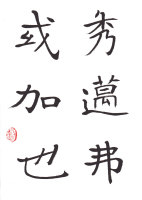 秀邁弗
或加也